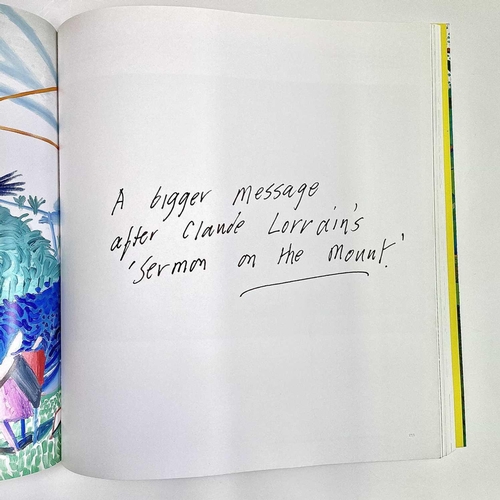 A bigger message
after Claude Lorrain's
'Sermon on the Mount.'